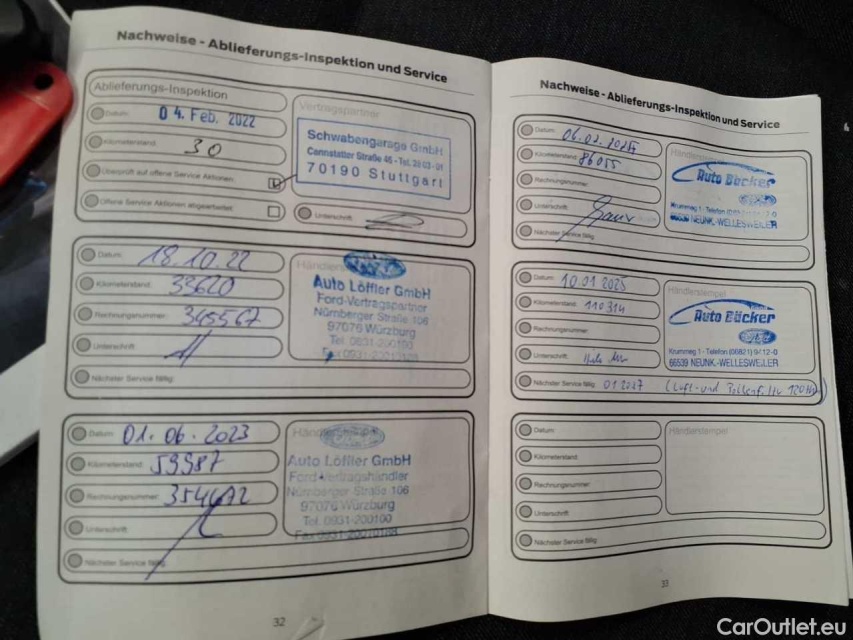 Nachweise - Ablieferungs-Inspektion und Service
Ablieferungs-Inspektion
Datum: 04. Feb. 2022
Kilometerstand: 30
Überprüft auf offene Service Aktionen:
Offene Service Aktionen abgearbeitet:
Vertragspartner
Schwabengarage GmbH
Cannstatter Straße 46 - Tel.
70190 Stuttgart
Unterschrift:
Datum: 18.10.22
Kilometerstand: 33620
Rechnungsnummer: 345567
Unterschrift:
Nächster Service fällig:
Auto Löffler GmbH
Ford-Vertragspartner
Nürnberger Straße 106
97076 Würzburg
Tel. 0931-200100
Datum: 01.06.2023
Kilometerstand: 59987
Rechnungsnummer: 354672
Unterschrift:
Nächster Service fällig:
Händlerstempel
Auto Löffler GmbH
Ford-Vertragshändler
Nürnberger Straße 106
97076 Würzburg
Tel. 0931-200100
32
Nachweise - Ablieferungs-Inspektion und Service
Datum:
Kilometerstand: 86055
Rechnungsnummer:
Unterschrift:
Nächster Service fällig:
Auto Bäcker
Krummeg 1 - Telefon
66539 NEUNK.-WELLESWEILER
Datum: 10.01 2025
Kilometerstand: 110314
Rechnungsnummer:
Unterschrift:
Nächster Service fällig: 01 2027 (Luft- und
Händlerstempel
Auto Bäcker
Krummeg 1 - Telefon (06821) 9/12-0
66539 NEUNK.-WELLESWEILER
Datum:
Kilometerstand:
Rechnungsnummer:
Unterschrift:
Nächster Service fällig:
Händlerstempel
33
CarOutlet.eu